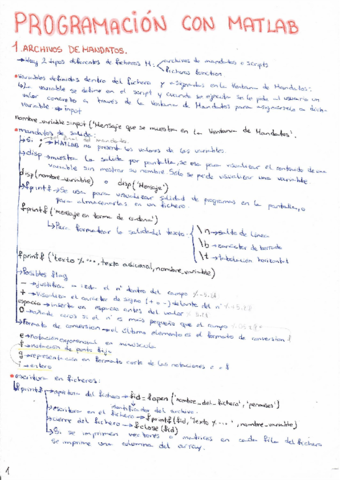 PROGRAMACIÓN CON MATLAB
1. ARCHIVOS DE MANDATOS.
→ Hay 2 tipos diferentes de ficheros M: archivos de mandatos o scripts
ficheros function.
Variables definidas dentro del fichero y asignadas en la Ventana de Mandatos:
La variable se define en el script y cuando se ejecuta se le pide al usuario un
valor concreto a través de la Ventana de Mandatos para asignárselo a dicha
variable → input
nombre_variable = input('Mensaje que se muestra en la Ventana de Mandatos').
mandatos de salida:
→ Si ; al final del mandato
MATLAB no presenta los valores de las variables.
→ disp → muestra la salida por pantalla, se usa para visualizar el contenido de una
variable sin mostrar su nombre. Solo se puede visualizar una variable
disp(nombre_variable) o disp('Mensaje')
→ fprintf → se usa para visualizar salidas de programas en la pantalla, o
para almacenarlas en un fichero
fprintf('mensaje en forma de cadena')
→ Para formatear la salida del texto
\n → salto de línea
\b → carácter de borrado
\t → tabulación horizontal
fprintf('texto %...', texto adicional, nombre_variable)
→ Posibles flag
- → ajustar a izq. el nº dentro del campo
+ → visualizar el carácter de signo (+ o -) delante del nº
espacio → inserta un espacio antes del valor
0 → añade ceros si el nº es más pequeño que el campo
→ formato de conversión → el último elemento es el formato de conversión
e → notación exponencial en minúscula
f → notación de punto fijo
g → representación en formato corto de las notaciones e o f
i → entero
escritura en ficheros:
fprintf → apertura del fichero → fid = fopen('nombre_del_fichero', 'permisos')
identificador del archivo
→ escritura en el fichero → fprintf(fid, 'texto %...', nombre_variable)
→ cierre del fichero → fclose(fid)
→ Si se imprimen vectores o matrices en cada fila del fichero
se imprime una columna del array.
1